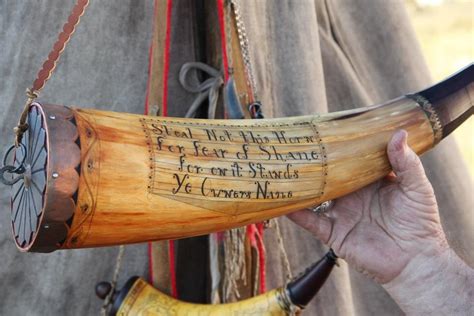 Steal Not this Horn
For fear of Shame
for on it Stands
Ye Owners Name